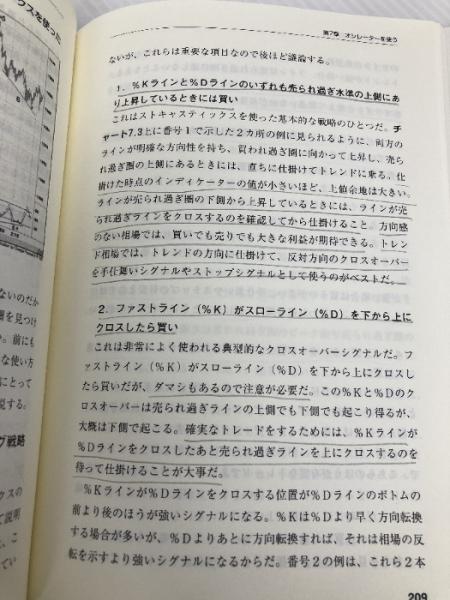 クスを使った
第7章 オシレーターを使う
ないが、これらは重要な項目なので後ほど議論する。
1．%Kラインと%Dラインのいずれも売られ過ぎ水準の上側にあ
り上昇しているときには買い
これはストキャスティックスを使った基本的な戦略のひとつだ。チ
ャート7.3上に番号1で示した2カ所の例に見られるように、両方の
ラインが明確な方向性を持ち、買われ過ぎ圏に向かって上昇し、売ら
れ過ぎ圏の上側にあるときには、直ちに仕掛けてトレンドに乗る。仕
掛けた時点のインディケーターの値が小さいほど、上値余地は大きい。
ラインが売られ過ぎ圏の下側から上昇しているときには、ラインが売
られ過ぎラインをクロスするのを確認してから仕掛けること。方向感
のない相場では、買いでも売りでも大きな利益が期待できる。トレン
ド相場では、トレンドの方向に仕掛けて、反対方向のクロスオーバー
を手仕舞いシグナルやストップシグナルとして使うのがベストだ。
2．ファストライン（%K）がスローライン（%D）を下から上に
クロスしたら買い
これは非常によく使われる典型的なクロスオーバーシグナルだ。フ
ァストライン（%K）がスローライン（%D）を下から上にクロスし
たら買いだが、ダマシもあるので注意が必要だ。この%Kと%Dのク
ロスオーバーは売られ過ぎラインの上側でも下側でも起こり得るが、
大概は下側で起こる。確実なトレードをするためには、%Kラインが
%Dラインをクロスしたあと売られ過ぎラインを上にクロスするのを
待って仕掛けることが大事だ。
%Kラインが%Dラインをクロスする位置が%Dラインのボトムの
前より後のほうが強いシグナルになる。%Kは%Dより早く方向転換
する場合が多いが、%Dよりあとに方向転換すれば、それは相場の反
転を示すより強いシグナルになるからだ。番号2の例は、これら2本
209
ないのだか
圏を見つけ
か。前にも
な使い方
にとって
説する。
グ戦略
クスの
て説明
、こ
てい